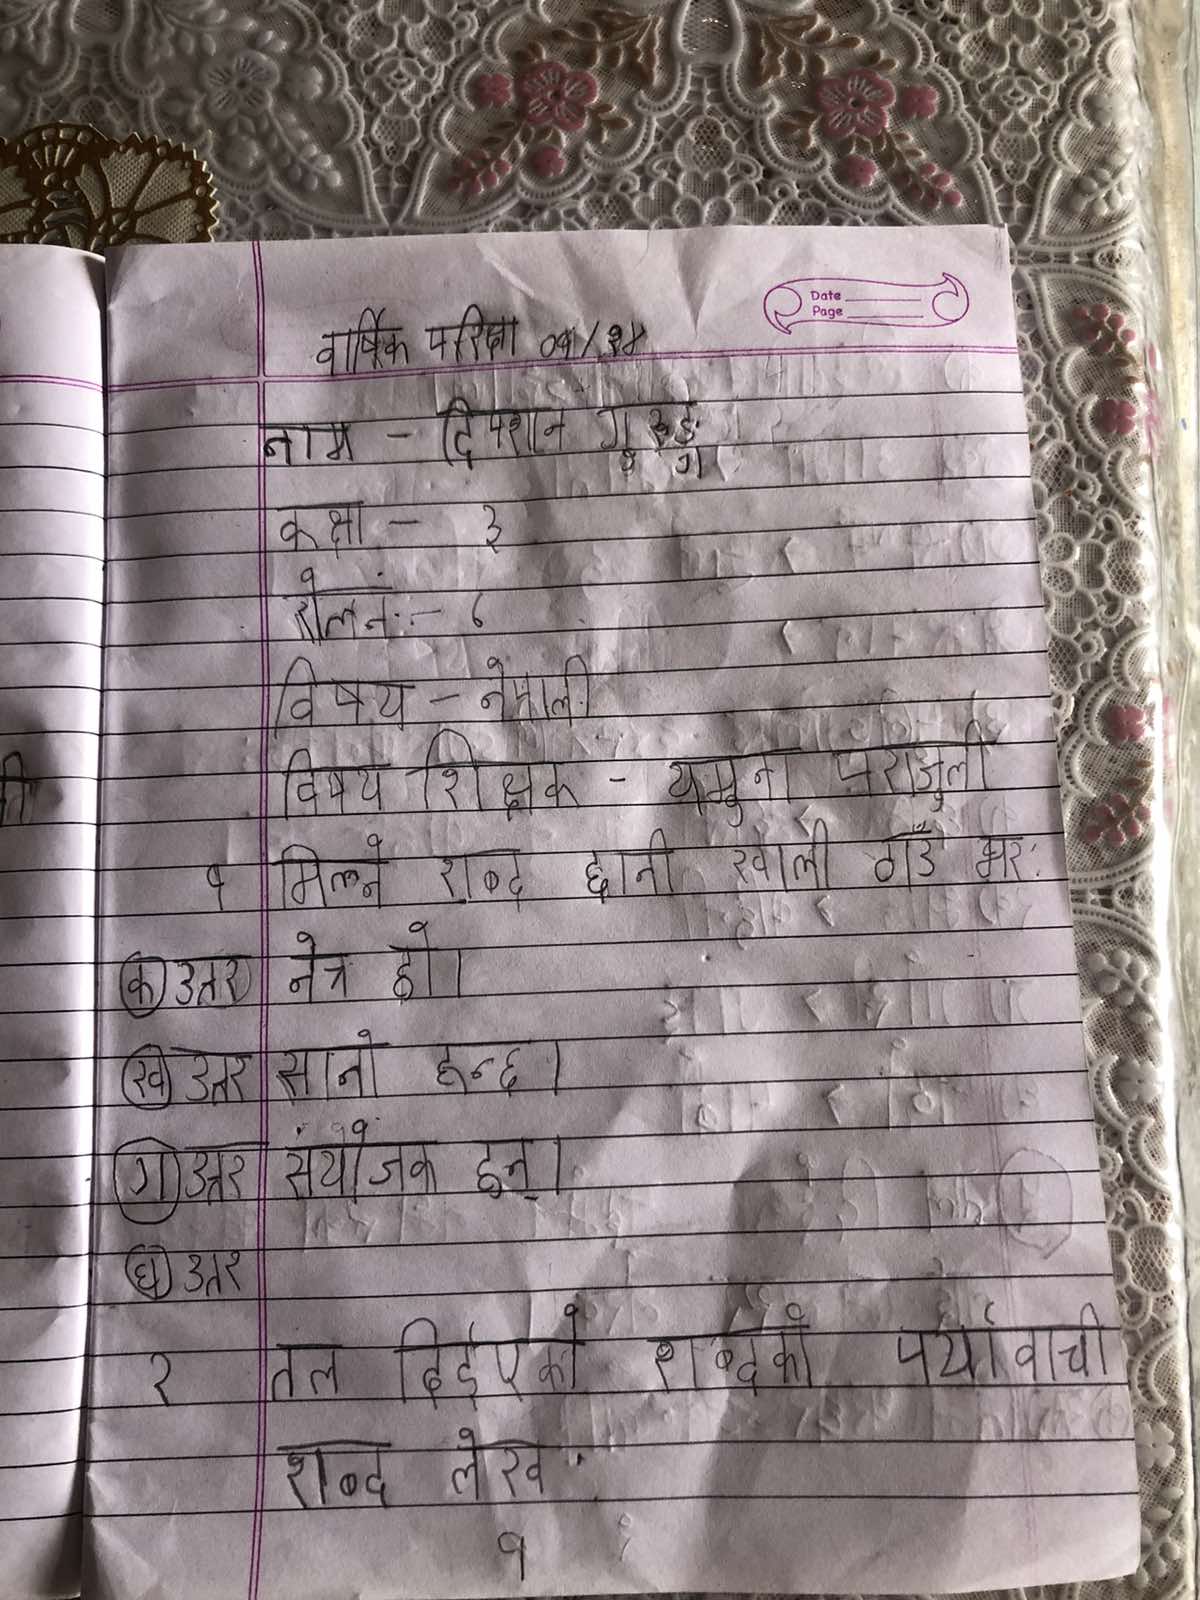 Date
Page
वार्षिक परिक्षा ०१/१४
नाम - दिपशन गुरुङ्ग
कक्षा - ३
रोलनं:- ६
विषय - नेपाली
विषय शिक्षक - यमुना पराजुली
१ मिल्ने शब्द छानी खाली ठाउँ भर:
क उत्तर नेत्र हो।
ख उत्तर सानो हुन्छ।
ग उत्तर संयोजक हुन्।
घ उत्तर
२ तल दिईएको शब्दको पर्यावाची
शब्द लेख :
१